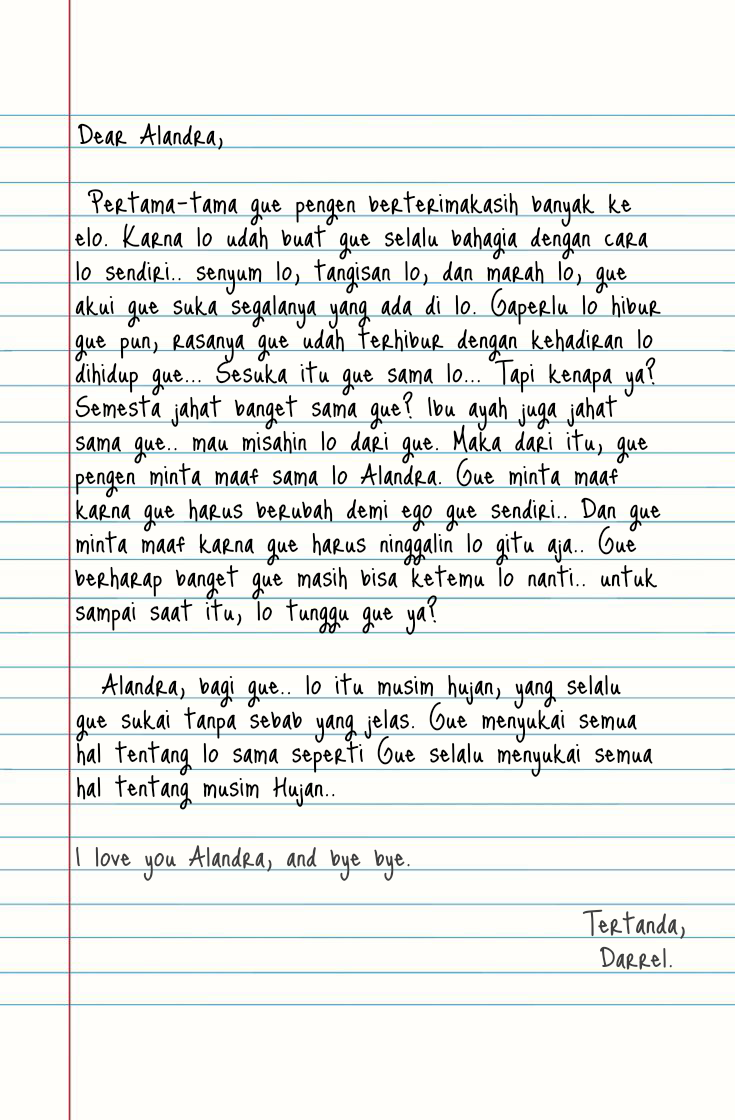 Dear Alandra,
Pertama-tama gue pengen berterimakasih banyak ke
elo. Karna lo udah buat gue selalu bahagia dengan cara
lo sendiri.. senyum lo, tangisan lo, dan marah lo, gue
akui gue suka segalanya yang ada di lo. Gaperlu lo hibur
gue pun, rasanya gue udah terhibur dengan kehadiran lo
dihidup gue... Sesuka itu gue sama lo... Tapi kenapa ya?
Semesta jahat banget sama gue? Ibu ayah juga jahat
sama gue.. mau misahin lo dari gue. Maka dari itu, gue
pengen minta maaf sama lo Alandra. Gue minta maaf
karna gue harus berubah demi ego gue sendiri.. Dan gue
minta maaf karna gue harus ninggalin lo gitu aja.. Gue
berharap banget gue masih bisa ketemu lo nanti.. untuk
sampai saat itu, lo tunggu gue ya?
Alandra, bagi gue.. lo itu musim hujan, yang selalu
gue sukai tanpa sebab yang jelas. Gue menyukai semua
hal tentang lo sama seperti Gue selalu menyukai semua
hal tentang musim Hujan..
I love you Alandra, and bye bye.
Tertanda,
Darrel.